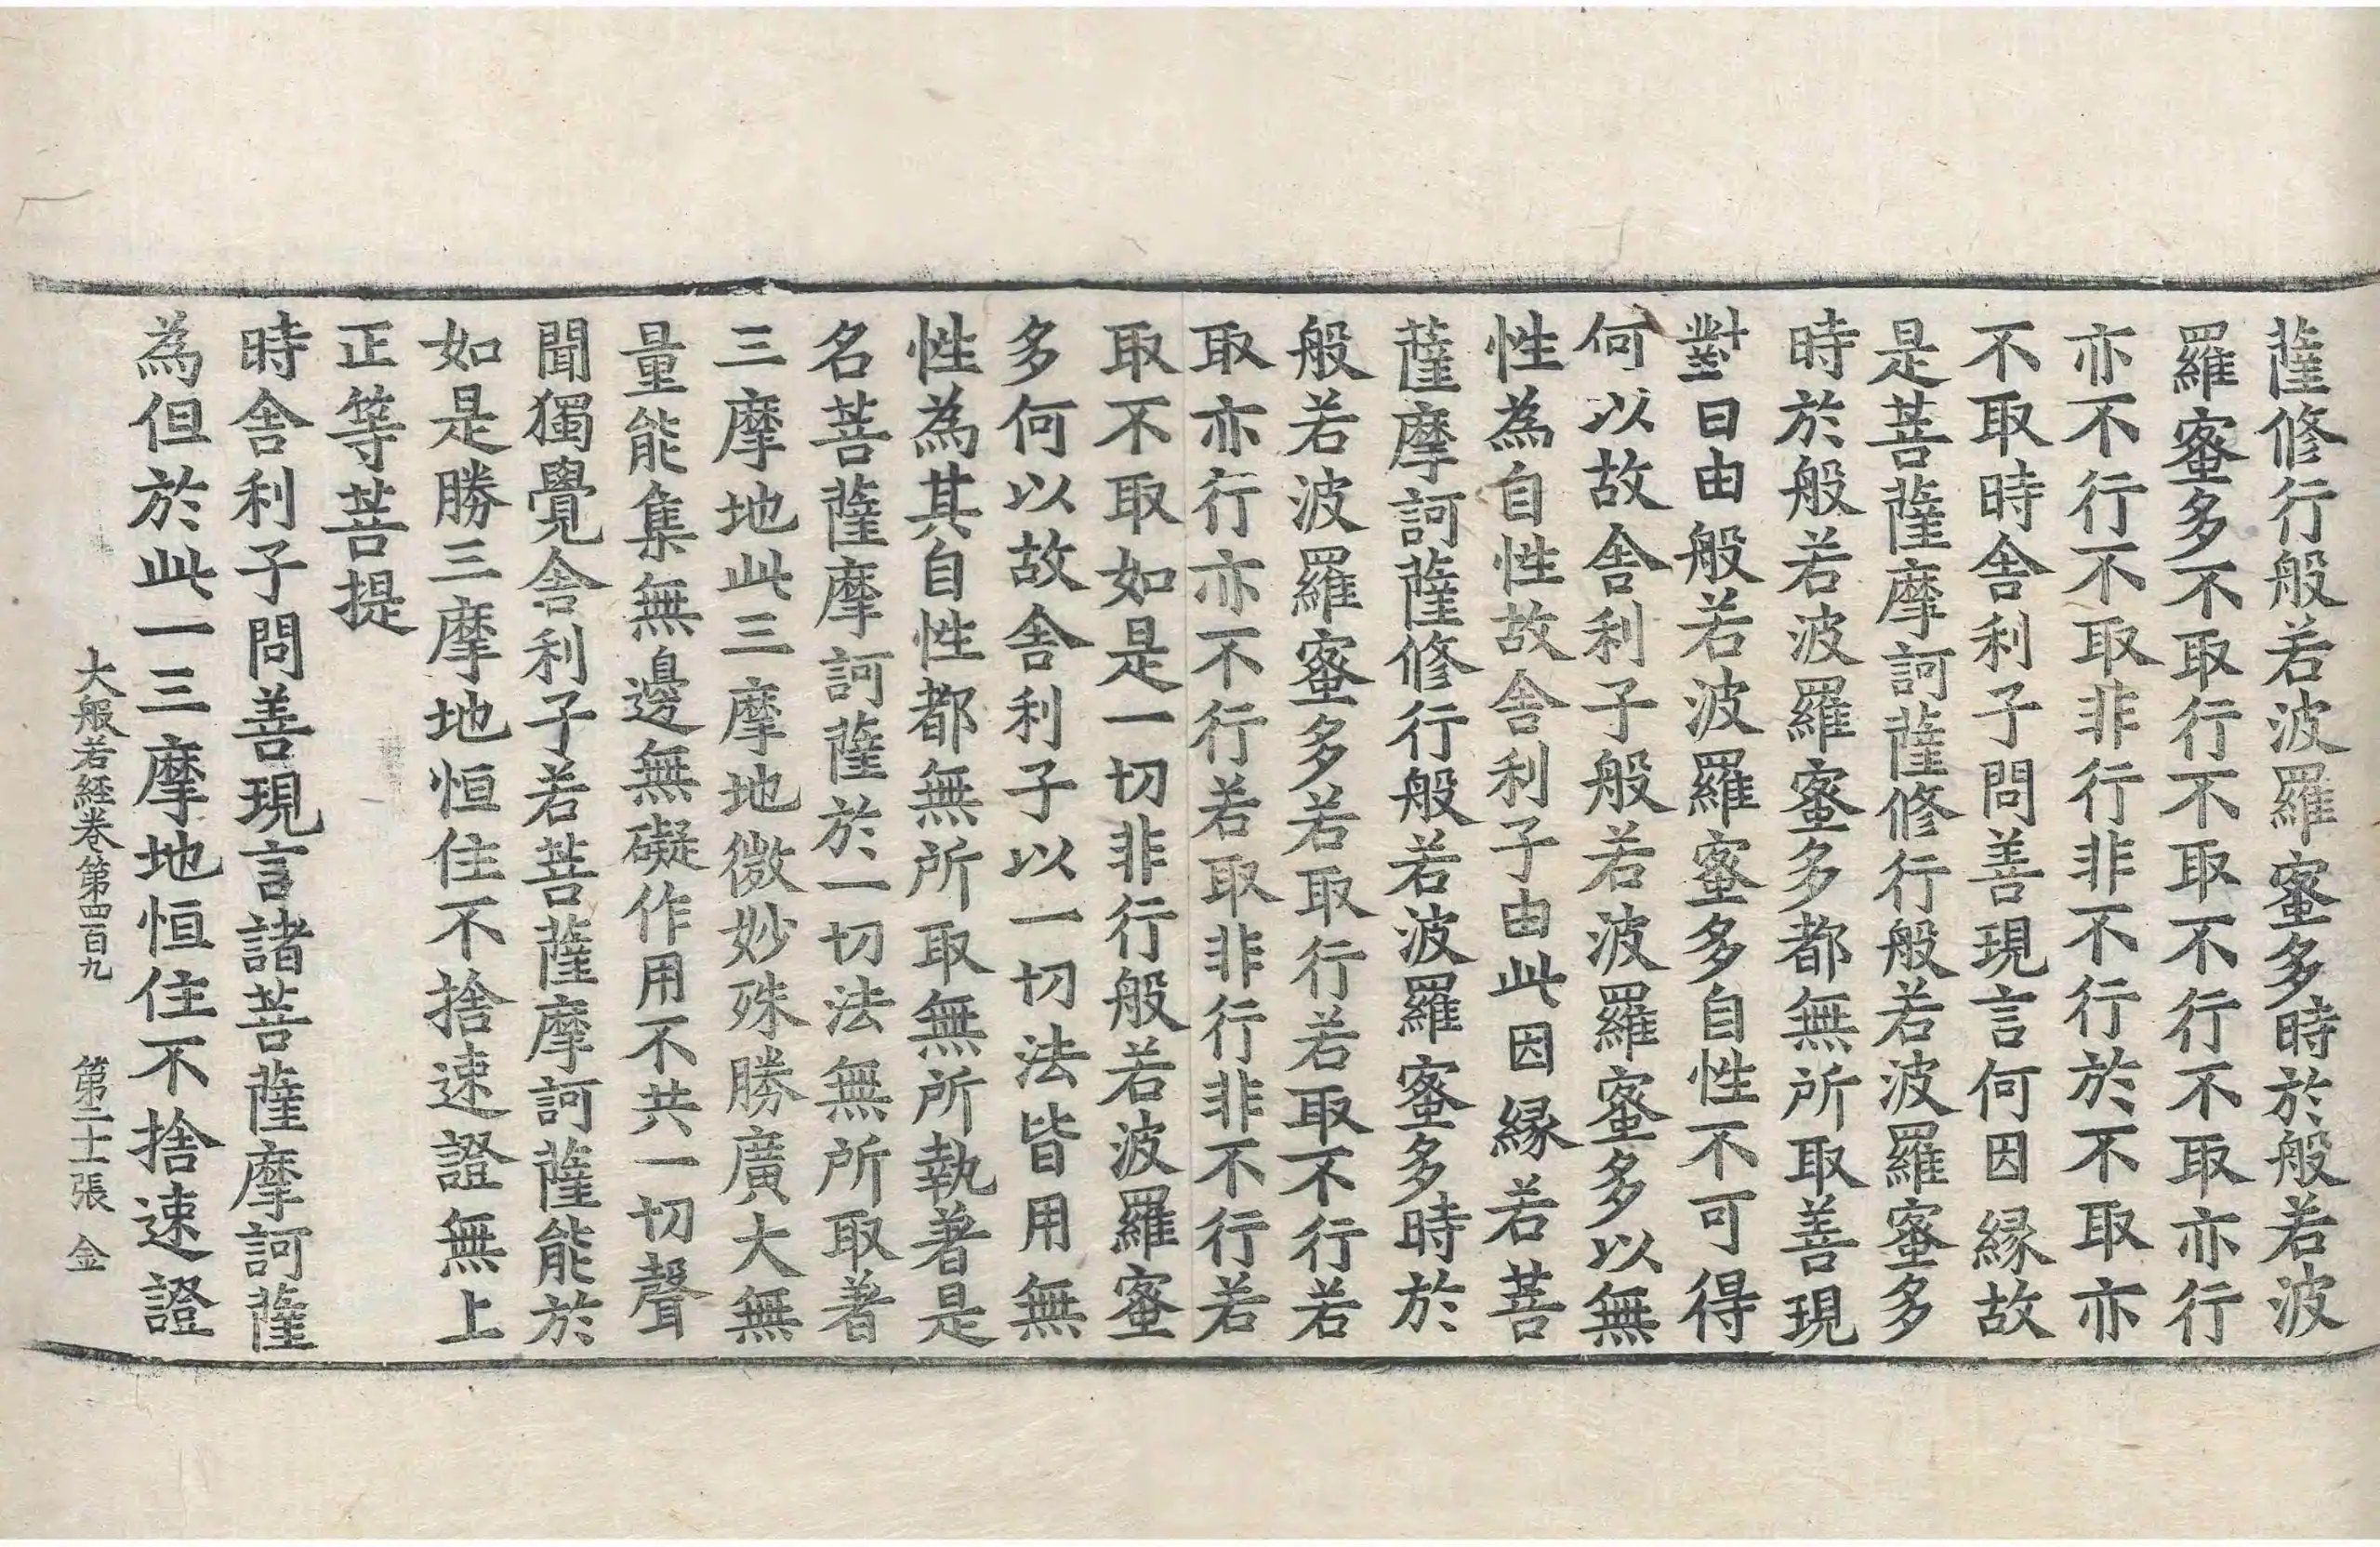 薩修行般若波羅蜜多時於般若波
羅蜜多不取行不取不行不取亦行
亦不行不取非行非不行於不取亦
不取時舍利子問善現言何因縁故
是菩薩摩訶薩修行般若波羅蜜多
時於般若波羅蜜多都無所取善現
對曰由般若波羅蜜多自性不可得
何以故舍利子般若波羅蜜多以無
性為自性故舍利子由此因縁若菩
薩摩訶薩修行般若波羅蜜多時於
般若波羅蜜多若取行若取不行若
取亦行亦不行若取非行非不行若
取不取如是一切非行般若波羅蜜
多何以故舍利子以一切法皆用無
性為其自性都無所取無所執著是
名菩薩摩訶薩於一切法無所取著
三摩地此三摩地微妙殊勝廣大無
量能集無邊無礙作用不共一切聲
聞獨覺舍利子若菩薩摩訶薩能於
如是勝三摩地恒住不捨速證無上
正等菩提
時舍利子問善現言諸菩薩摩訶薩
為但於此一三摩地恒住不捨速證
大般若經卷第四百九 第二十張 金